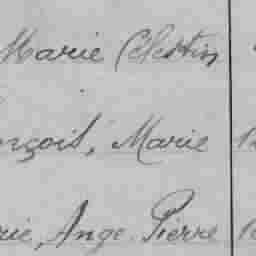 Marie Celestin
nçois, Marie 1
rie, Ange Pierre 1